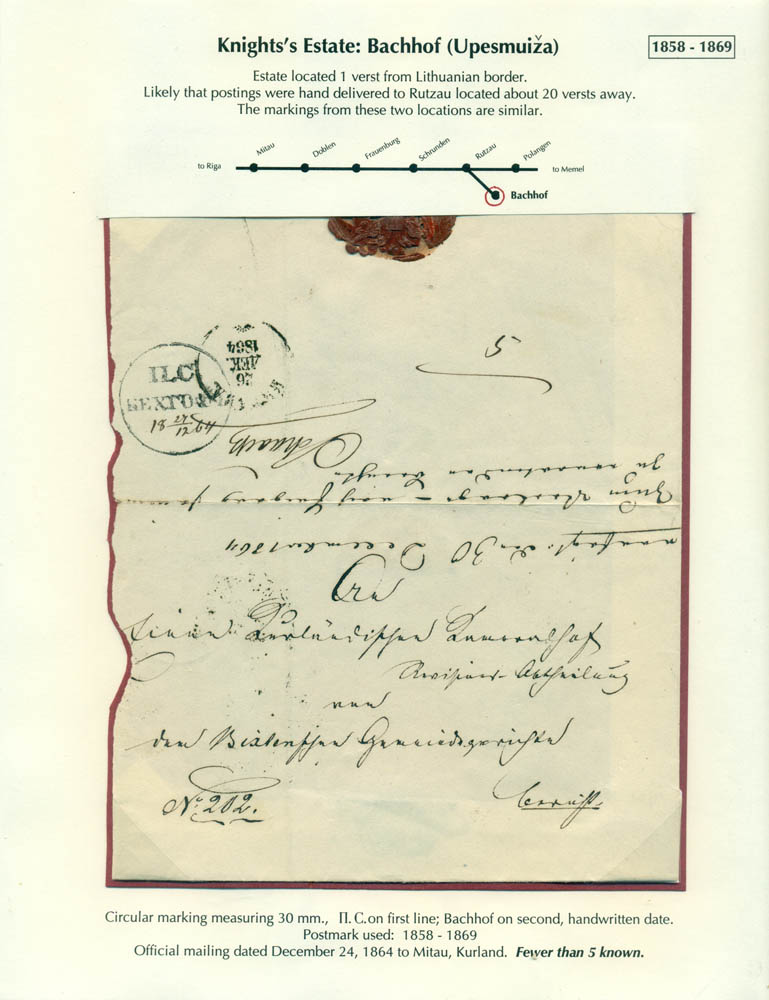 Knights's Estate: Bachhof (Upesmuiža)
1858 - 1869
Estate located 1 verst from Lithuanian border.
Likely that postings were hand delivered to Rutzau located about 20 versts away.
The markings from these two locations are similar.
to Riga
Mitau
Doblen
Frauenburg
Schrunden
Rutzau
Polangen
to Memel
Bachhof
5
26
ДЕК.
1864
П.С.
18 24/12 64
30 December 1864
An
Einen Kurländischen Kameralhof
Revisions-Abtheilung
von
dem Gemeindegerichte
No. 202.
Bericht
Circular marking measuring 30 mm., П. С. on first line; Bachhof on second, handwritten date.
Postmark used: 1858 - 1869
Official mailing dated December 24, 1864 to Mitau, Kurland. Fewer than 5 known.